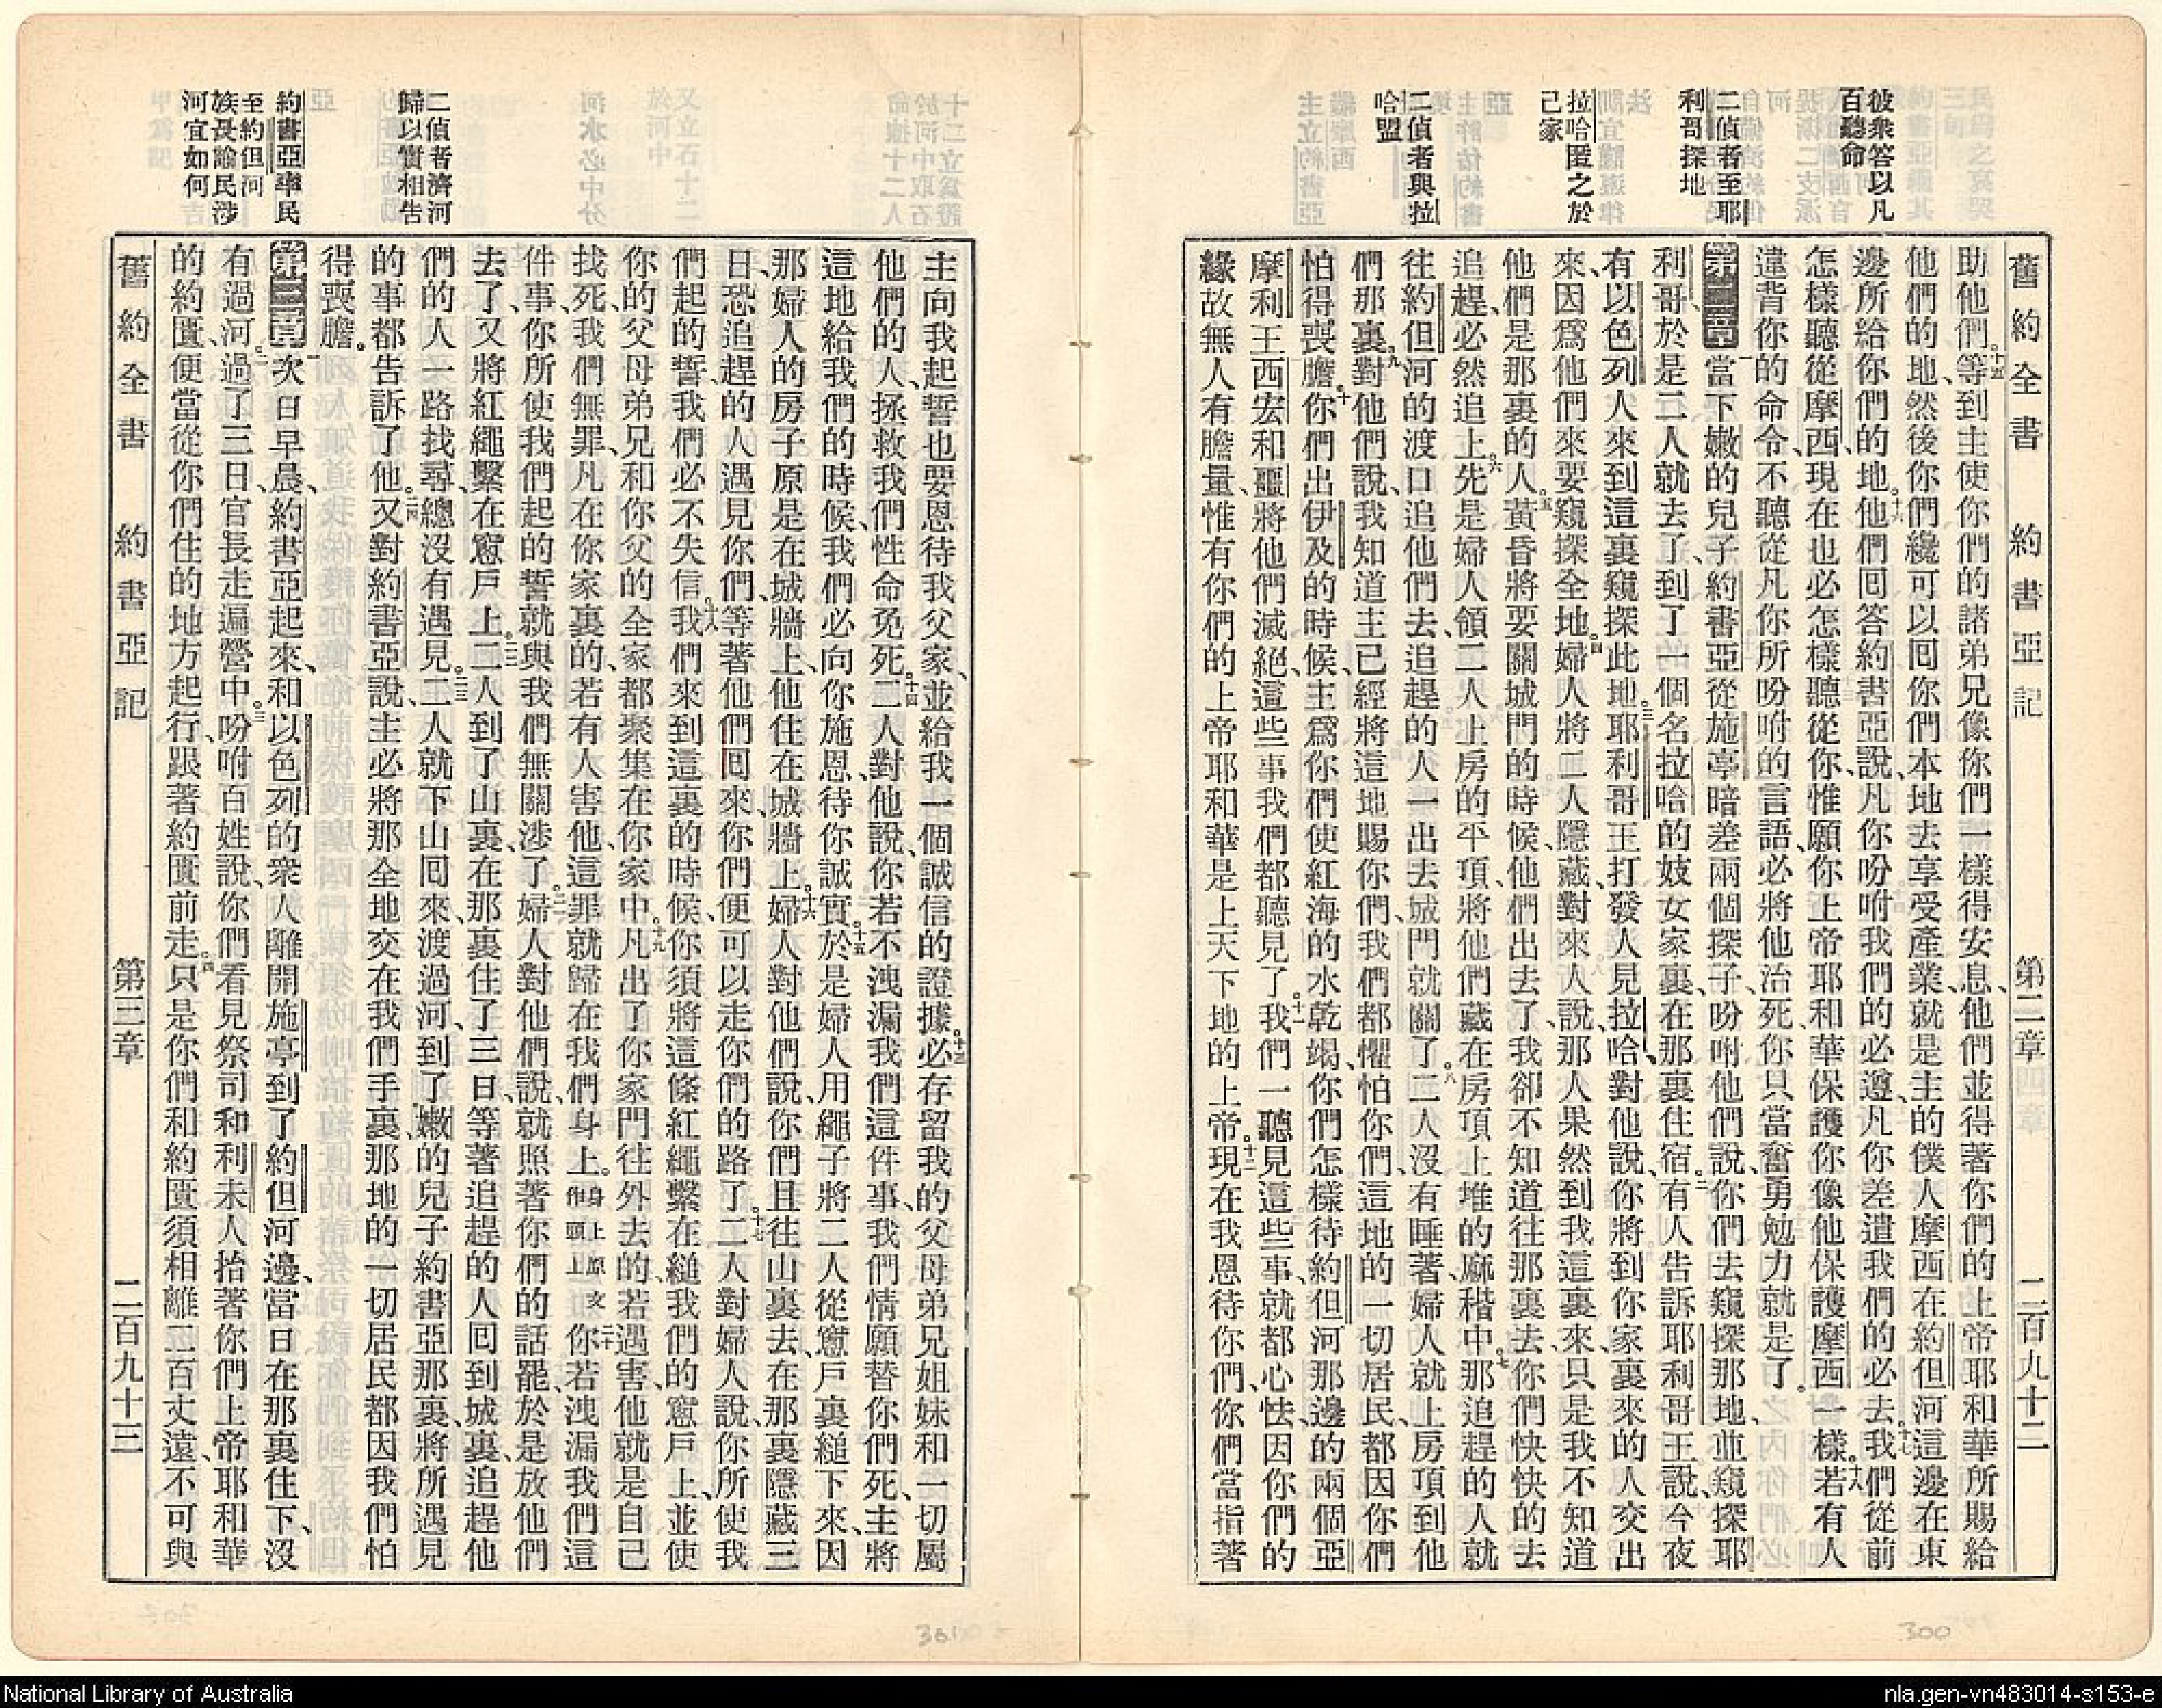 舊約全書　約書亞記　第二章　二百九十二
彼衆答以凡
百聽命
二偵者至耶
利哥探地
拉哈匿之於
己家
二偵者與拉
哈盟
助他們。十五等到主使你們的諸弟兄像你們一樣得安息、他們並得著你們的上帝耶和華所賜給
他們的地、然後你們纔可以回你們本地去享受產業、就是主的僕人摩西在約但河這邊在東
邊所給你們的地。十六他們回答約書亞說、凡你吩咐我們的必遵、凡你差遣我們的必去。十七我們從前
怎樣聽從摩西、現在也必怎樣聽從你、惟願你上帝耶和華保護你像他保護摩西一樣。十八若有人
違背你的命令、不聽從凡你所吩咐的言語、必將他治死、你只當奮勇勉力就是了。
第二章一當下嫩的兒子約書亞從施亭暗差兩個探子、吩咐他們說、你們去窺探那地、並窺探耶
利哥、於是二人就去了、到了一個名拉哈的妓女家裏、在那裏住宿。二有人告訴耶利哥王說、今夜
有以色列人來到這裏窺探此地。三耶利哥王打發人見拉哈、對他說、你將到你家裏來的人交出
來、因爲他們來要窺探全地。四婦人將二人隱藏、對來人說、那人果然到我這裏來、只是我不知道
他們是那裏的人。五黃昏將要關城門的時候、他們出去了、我卻不知道往那裏去、你們快快的去
追趕、必然追上。六先是婦人領二人上房的平頂、將他們藏在房頂上堆的麻稭中。七那追趕的人就
往約但河的渡口追他們去、追趕的人一出去、城門就關了。八二人沒有睡著、婦人就上房頂到他
們那裏。九對他們說、我知道主已經將這地賜你們、我們都懼怕你們、這地的一切居民、都因你們
怕得喪膽。十你們出伊及的時候、主爲你們使紅海的水乾竭、你們怎樣待約但河那邊的兩個亞
摩利王西宏和噩、將他們滅絕、這些事我們都聽見了。十一我們一聽見這些事、就都心怯、因你們的
緣故、無人有膽量、惟有你們的上帝耶和華是上天下地的上帝。十二現在我恩待你們、你們當指著
主向我起誓、也要恩待我父家、並給我一個誠信的證據。十三必存留我的父母弟兄姐妹和一切屬
他們的人、拯救我們性命免死。十四二人對他說、你若不洩漏我們這件事、我們情願替你們死、主將
這地給我們的時候、我們必向你施恩、待你誠實。十五於是婦人用繩子將二人從窻戶裏縋下來、因
那婦人的房子原是在城牆上、他住在城牆上。十六婦人對他們說、你們且往山裏去、在那裏隱藏三
日、恐追趕的人遇見你們、等著他們回來、你們便可以走你們的路了。十七二人對婦人說、你所使我
們起的誓、我們必不失信。十八我們來到這裏的時候、你須將這條紅繩繫在縋我們的窻戶上、並使
你的父母弟兄、和你父的全家、都聚集在你家中。十九凡出了你家門往外去的、若遇害、他就是自己
找死、我們無罪、凡在你家裏的、若有人害他、這罪就歸在我們身上。身上原文作頭上二十你若洩漏我們這
件事、你所使我們起的誓就與我們無關涉了。二一婦人對他們說、就照著你們的話罷、於是放他們
去了、又將紅繩繫在窻戶上。二二二人到了山裏、在那裏住了三日、等著追趕的人回到城裏、追趕他
們的人一路找尋、總沒有遇見。二三二人就下山回來、渡過河、到了嫩的兒子約書亞那裏、將所遇見
的事都告訴了他。二四又對約書亞說、主必將那全地交在我們手裏、那地的一切居民都因我們怕
得喪膽。
第三章一次日早晨、約書亞起來、和以色列的衆人離開施亭、到了約但河邊、當日在那裏住下、沒
有過河。二過了三日、官長走遍營中。三吩咐百姓說、你們看見祭司和利未人抬著你們上帝耶和華
的約匱、便當從你們住的地方起行、跟著約匱前走。四只是你們和約匱須相離二百丈遠、不可與
二偵者濟河
歸以實相告
約書亞率民
至約但河
族長諭民涉
河宜如何
舊約全書　約書亞記　第三章　二百九十三
300
National Library of Australia
nla.gen-vn483014-s153-e